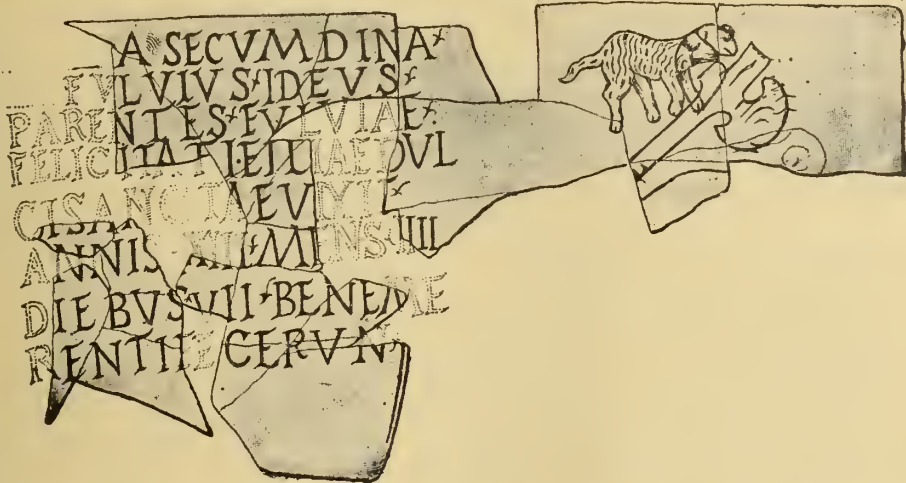 A SECVMDINA
FVLVIVS IDEVS
PARENTES FVLVIAE
FELICITATI FILIAE DVL
CI SANCTAE
ANNIS MENS IIII
DIEBVS VII BENEME
RENTI FECERVN